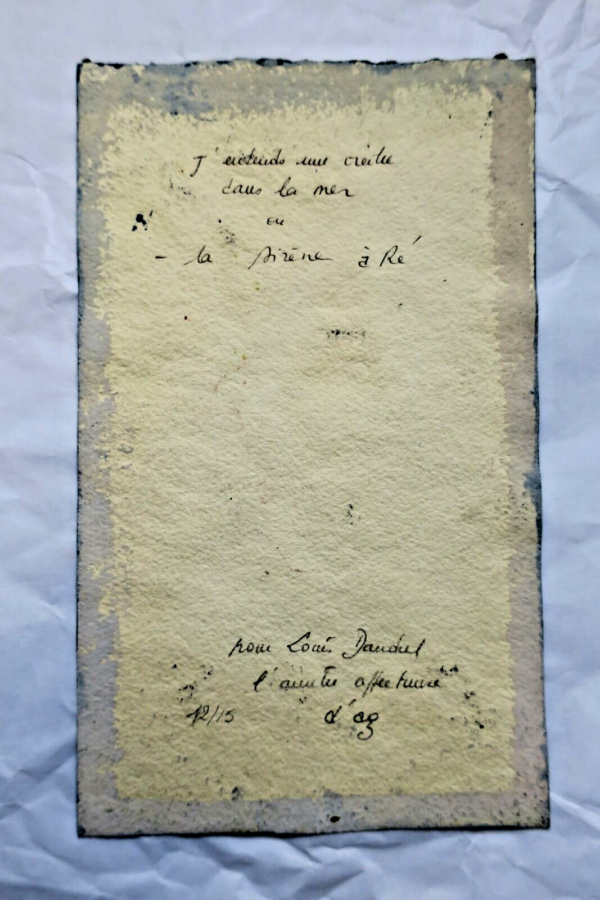 J'entends une
dans la mer
ou
- la sirène à Ré
pour Louis Dandrel
l'amitié affectueuse
12/15 d'